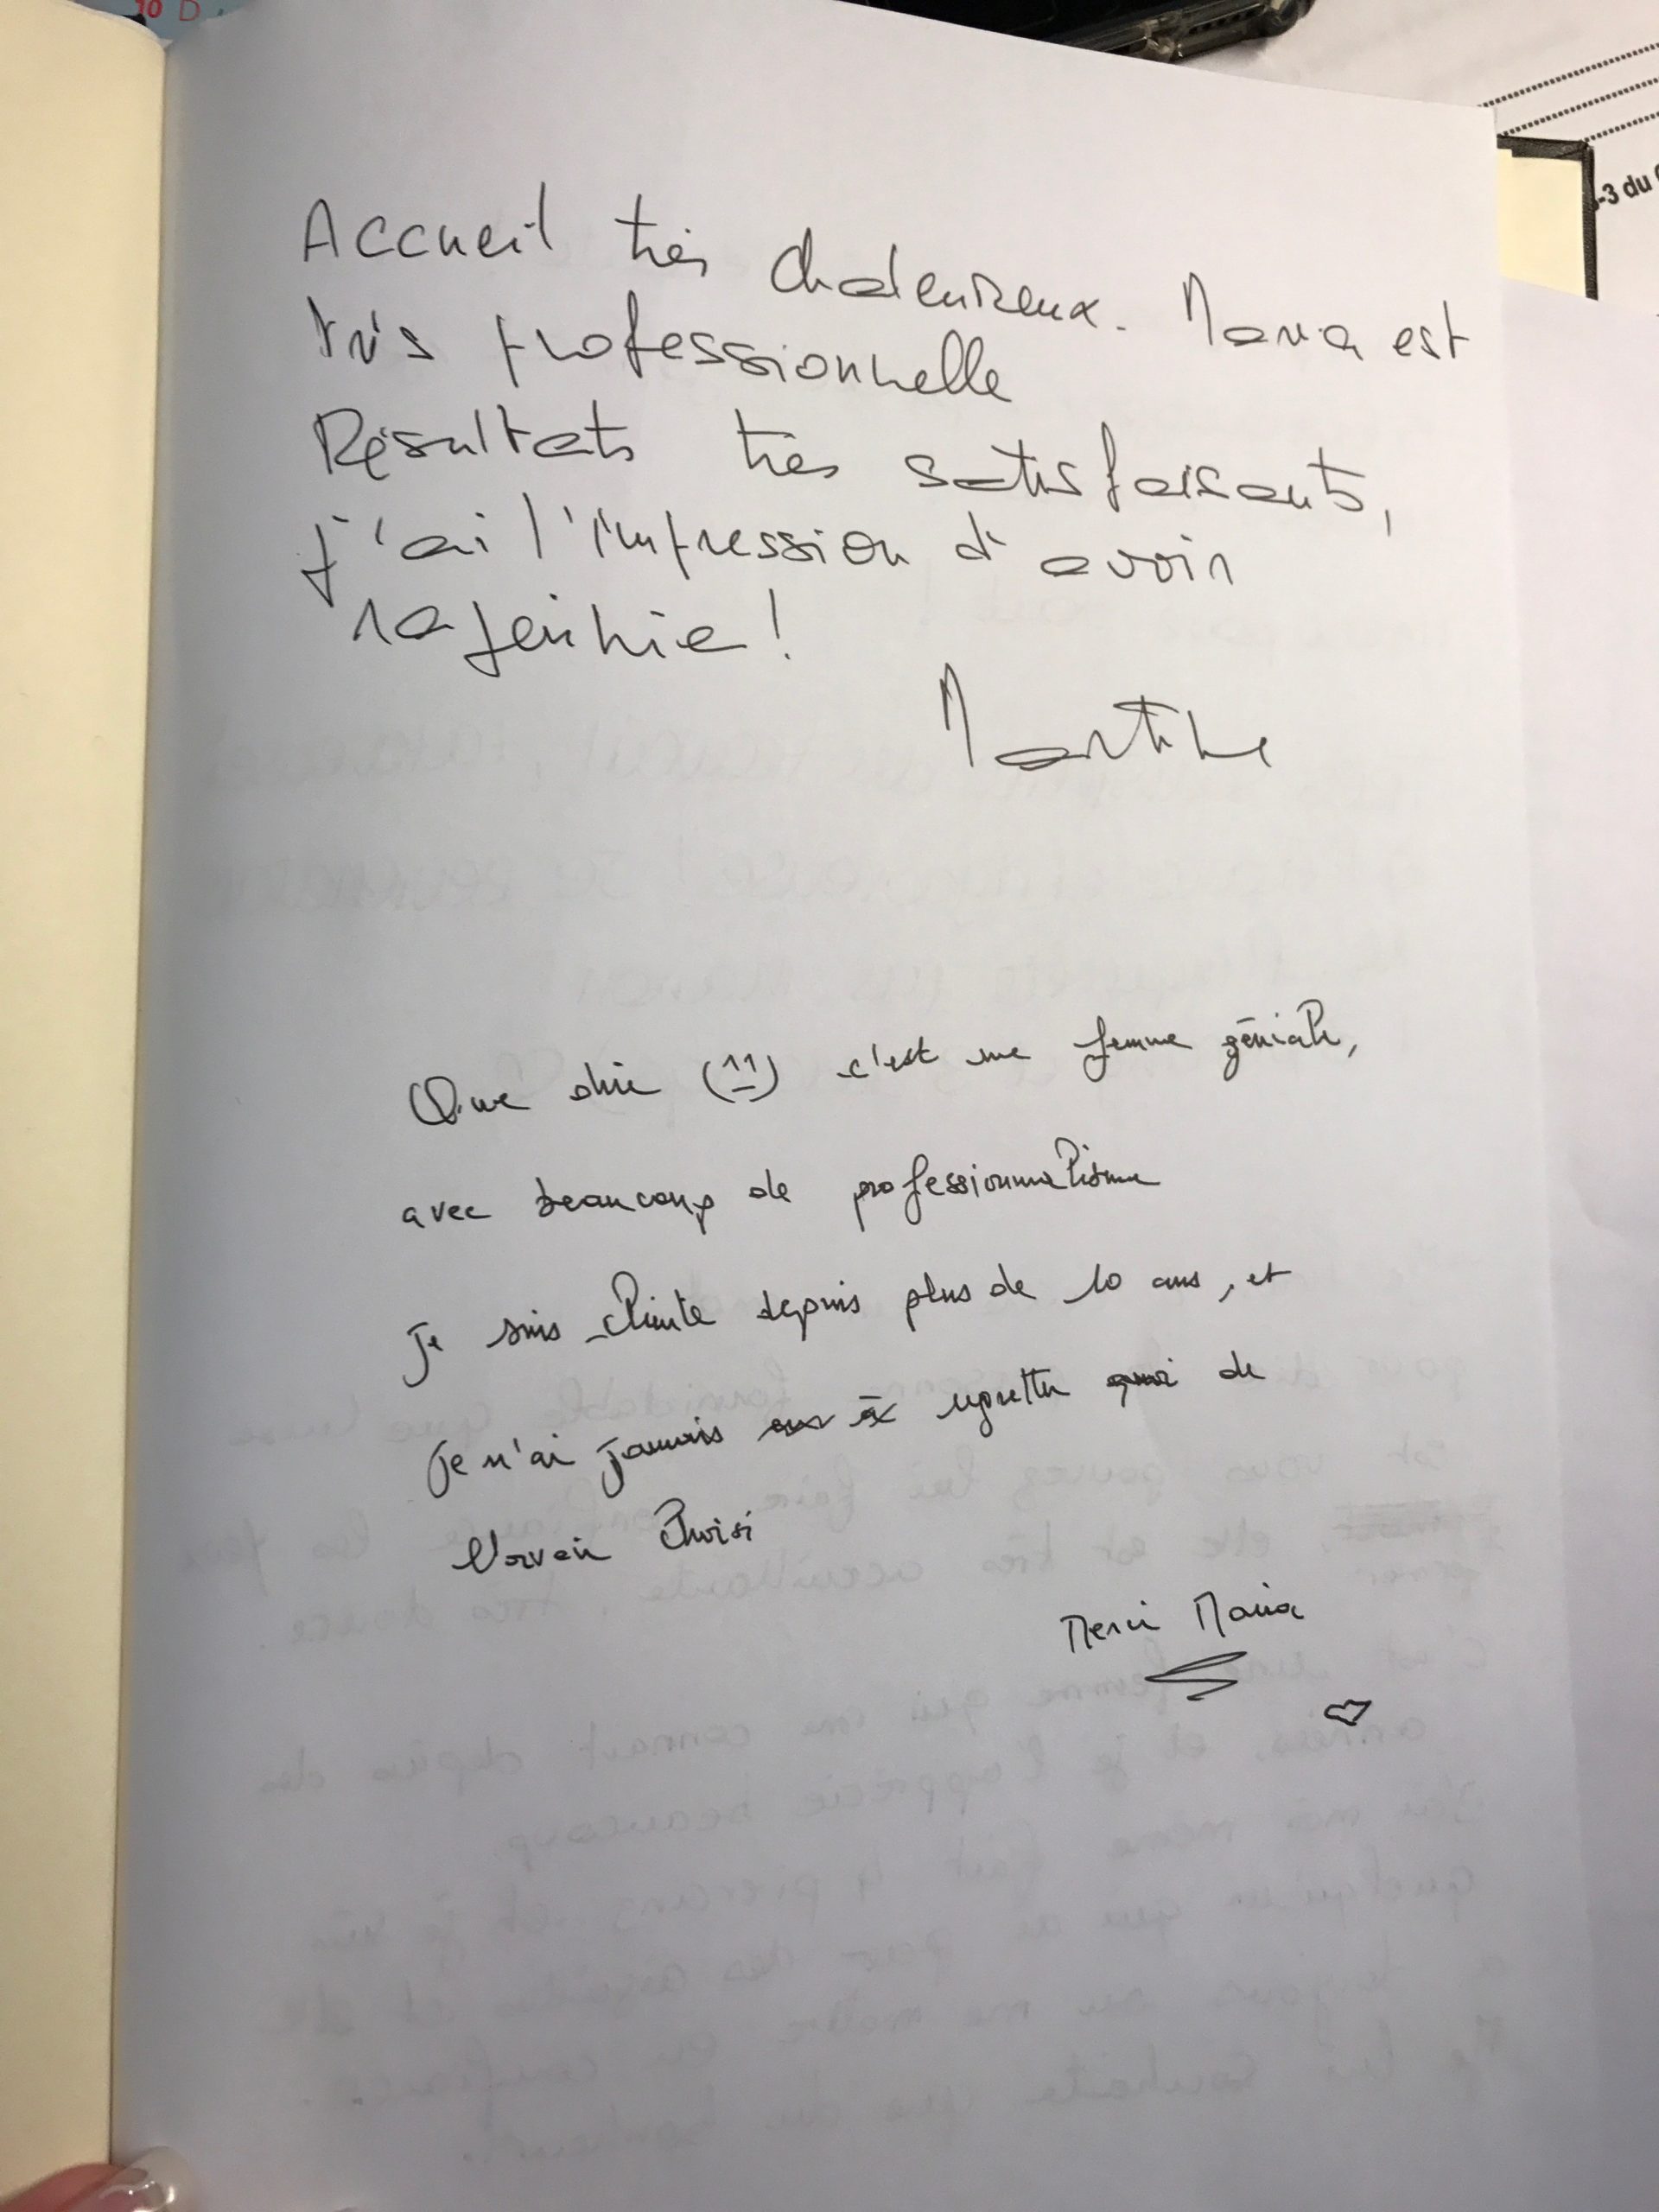 10 D
-3 du
Accueil très chaleureux. Maria est
très professionnelle
Résultats très satisfaisants,
j'ai l'impression d'avoir
rajeunie !
Martine
Que dire (^^) c'est une femme géniale,
avec beaucoup de professionnalisme
Je suis cliente depuis plus de 10 ans, et
Je n'ai jamais regretter de
l'avoir choisi
Merci Maria